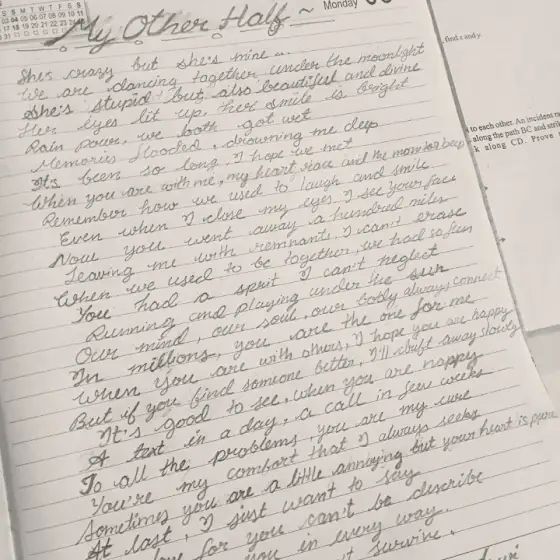 S S M T W T F S S
03 04 05 06 07 08 09 10 11
17 18 19 20 21 22 23 24
31
Monday
My Other Half ~
She's crazy but she's mine ...
We are dancing together under the moonlight
She's stupid but also beautiful and divine
Her eyes lit up, her smile is bright
Rain pours, we both got wet
Memories flooded, drowning me deep
It's been so long, I hope we met
When you are with me, my heart race until the monitor beep
Remember how we used to laugh and smile
Even when I close my eyes I see your face
Now you went away a hundred miles
Leaving me with remnants I can't erase
When we used to be together, we had so fun
You had a spirit I can't neglect
Running and playing under the sun
Our mind, our soul, our body always connect
In millions, you are the one for me
When you are with others, I hope you are happy
But if you find someone better, I'll drift away slowly
It's good to see, when you are happy
A text in a day, a call in few weeks
To all the problems, you are my cure
You're my comfort that I always seeks
Sometimes you are a little annoying but your heart is pure
At last, I just want to say
for you can't be describe
you in every way.
survive.
find x and y.
s to each other. An incident ra
along the path BC and strik
k along CD. Prove